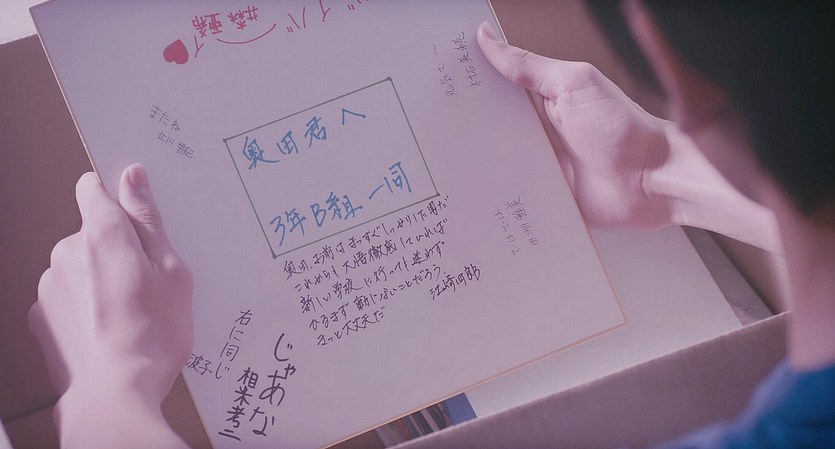 バイバイ
井森 亜希
元気で〜
またね
奥田君へ
3年B組一同
奥田 お前はまっすぐしっかりした男だ
これからも大悟徹底していれば
新しい学校に行っても迷わず
ひるまず動じないことだろう
きっと大丈夫だ
江崎四郎
右に同じ
波子
じゃあな
相米考二